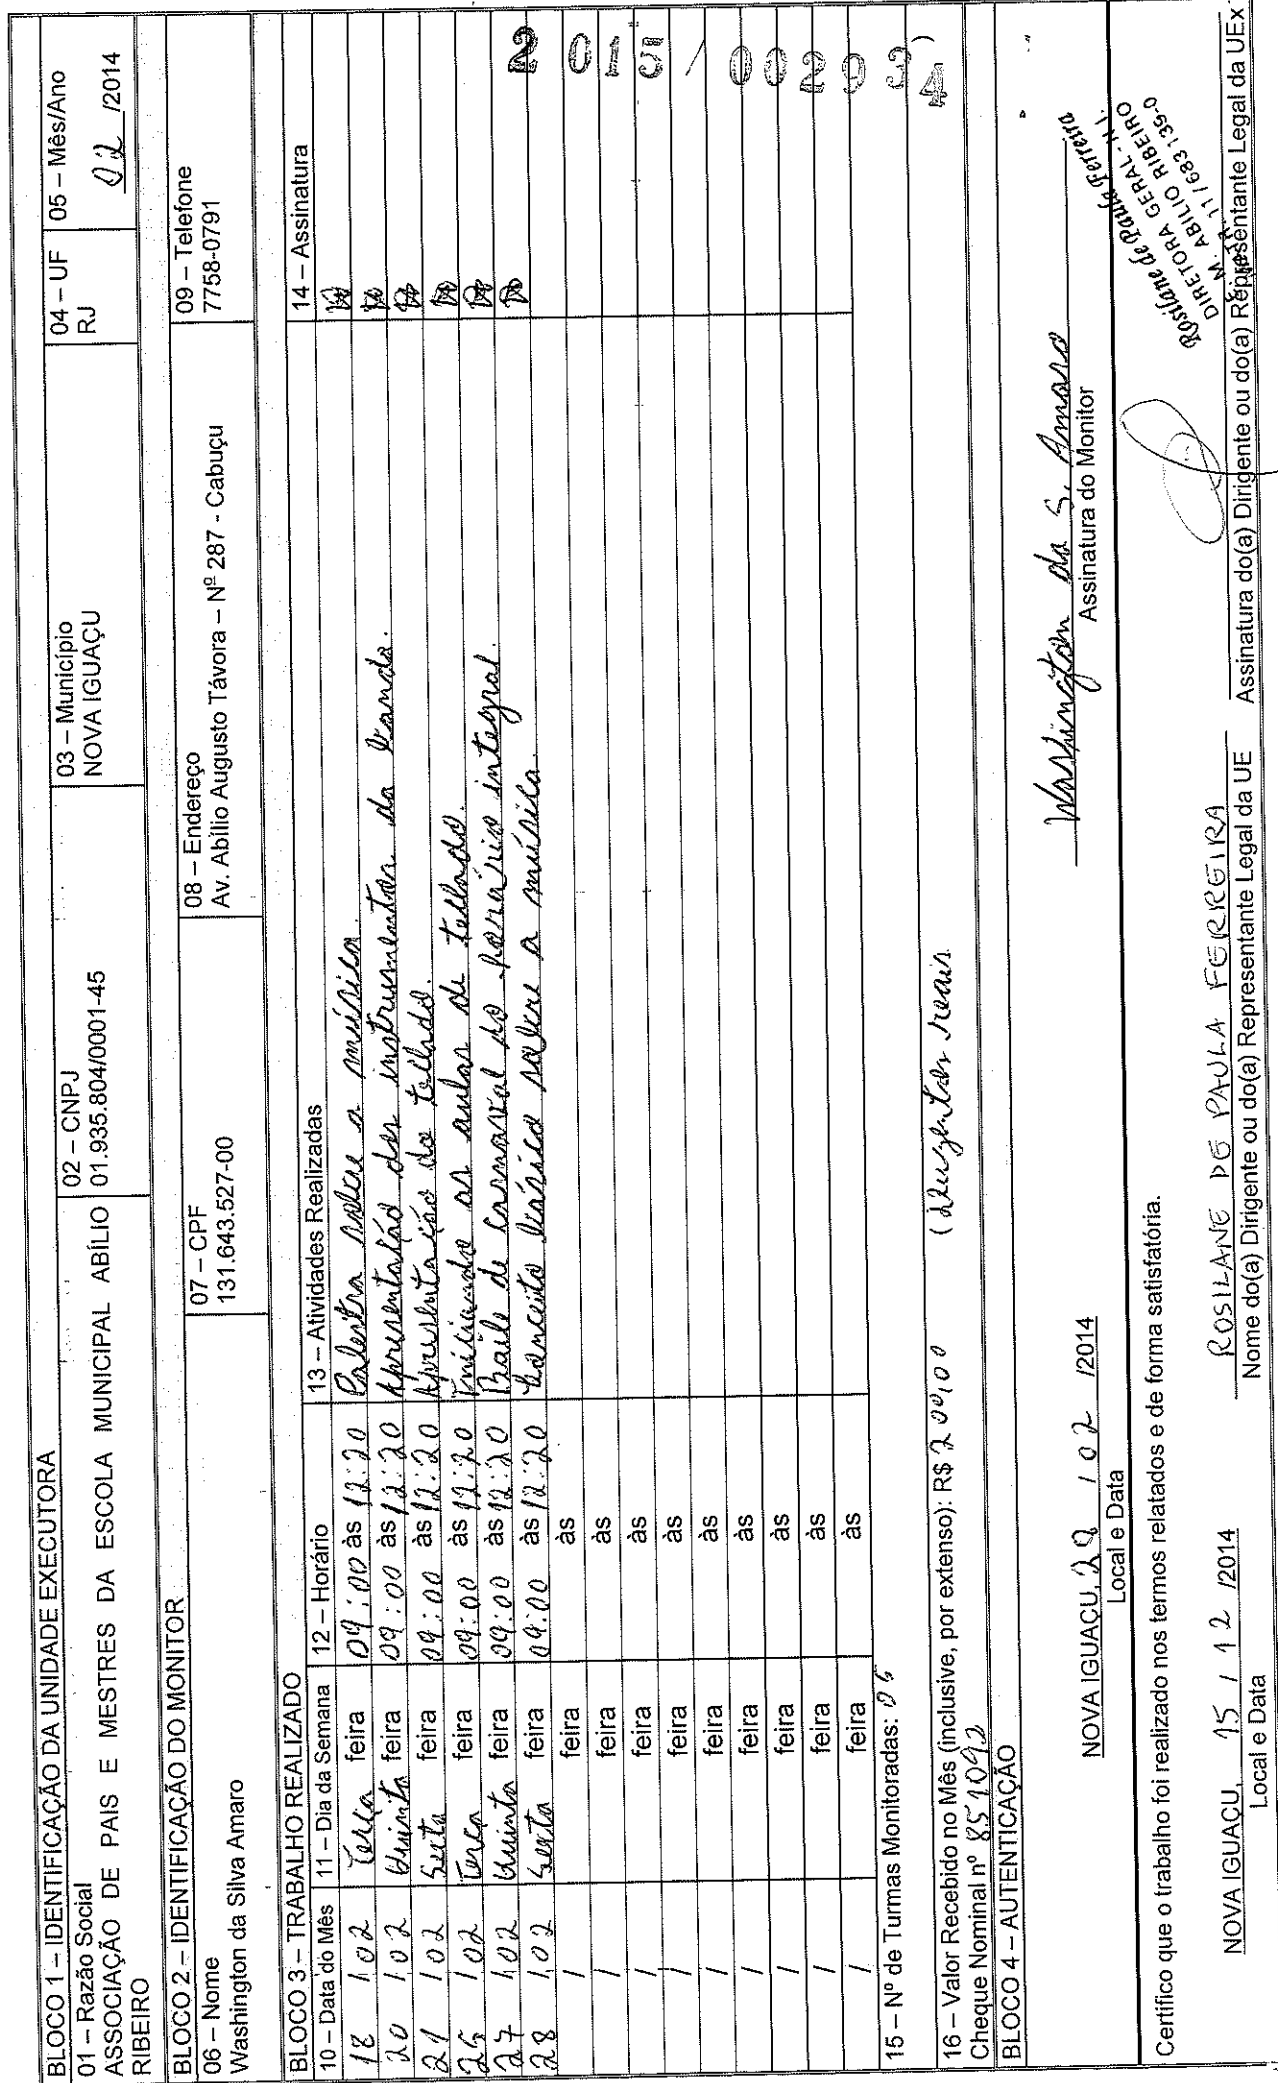 BLOCO 1 – IDENTIFICAÇÃO DA UNIDADE EXECUTORA
01 – Razão Social
ASSOCIAÇÃO DE PAIS E MESTRES DA ESCOLA MUNICIPAL ABÍLIO
RIBEIRO
02 – CNPJ
01.935.804/0001-45
03 – Município
NOVA IGUAÇU
04 – UF
RJ
05 – Mês/Ano
02 /2014
BLOCO 2 – IDENTIFICAÇÃO DO MONITOR
06 – Nome
Washington da Silva Amaro
07 – CPF
131.643.527-00
08 – Endereço
Av. Abílio Augusto Távora – Nº 287 - Cabuçu
09 – Telefone
7758-0791
BLOCO 3 – TRABALHO REALIZADO
10 – Data do Mês 11 – Dia da Semana 12 – Horário 13 – Atividades Realizadas 14 – Assinatura
18 / 02 Terça feira 09:00 às 12:20 Palestra sobre a música.
20 / 02 Quinta feira 09:00 às 12:20 Apresentação dos instrumentos da banda.
21 / 02 Sexta feira 09:00 às 12:20 Apresentação do teclado.
25 / 02 Terça feira 09:00 às 12:20 Iniciando as aulas de teclado.
27 / 02 Quinta feira 09:00 às 12:20 Baile de Carnaval do horário integral.
28 / 02 Sexta feira 09:00 às 12:20 Conceito básico sobre a música.
/ feira às
/ feira às
/ feira às
/ feira às
/ feira às
/ feira às
/ feira às
/ feira às
/ feira às
2015/002934
15 – Nº de Turmas Monitoradas: 05
16 – Valor Recebido no Mês (inclusive, por extenso): R$ 200,00 (duzentos reais
Cheque Nominal nº 851092
BLOCO 4 – AUTENTICAÇÃO
NOVA IGUAÇU, 28 / 02 /2014
Local e Data
Washington da S. Amaro
Assinatura do Monitor
Certifico que o trabalho foi realizado nos termos relatados e de forma satisfatória.
Rosilane de Paula Ferreira
DIRETORA GERAL - N.I.
ABILIO RIBEIRO
11 / 683139-0
NOVA IGUAÇU, 15 / 12 /2014
Local e Data
ROSILANE DE PAULA FERREIRA
Nome do(a) Dirigente ou do(a) Representante Legal da UE
Assinatura do(a) Dirigente ou do(a) Representante Legal da UEx